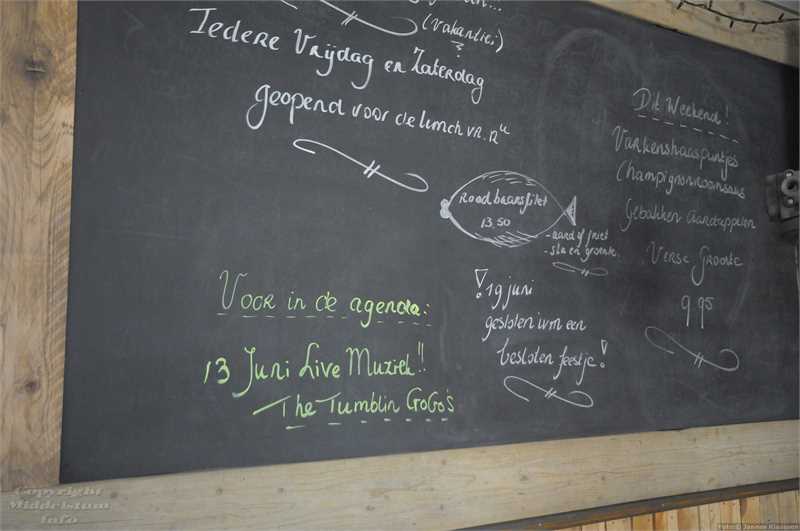 (vakanties)
Iedere Vrijdag en Zaterdag
geopend voor de lunch va. 12 u
Dit Weekend!
Varkenshaaspuntjes
Champignonroomsaus
Gebakken Aardappelen
Verse Groente
9,95
Roodbaarsfilet
13,50
- aard of friet
- sla en groente
Voor in de agenda:
13 Juni Live Muziek!!
The Tumblin GoGo's
! 19 juni
gesloten ivm een
besloten feestje!
Copyright
Middelstum
Info
Foto:© Jannes Klaassen